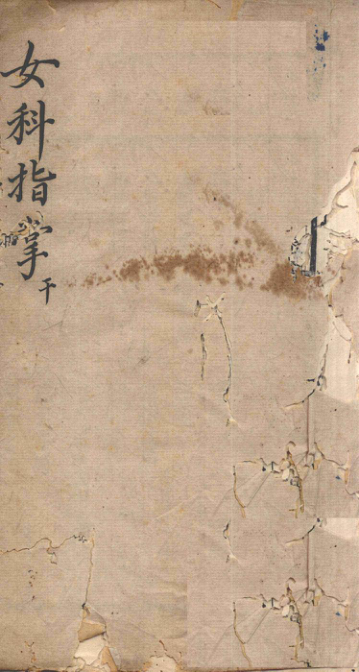 女科指掌